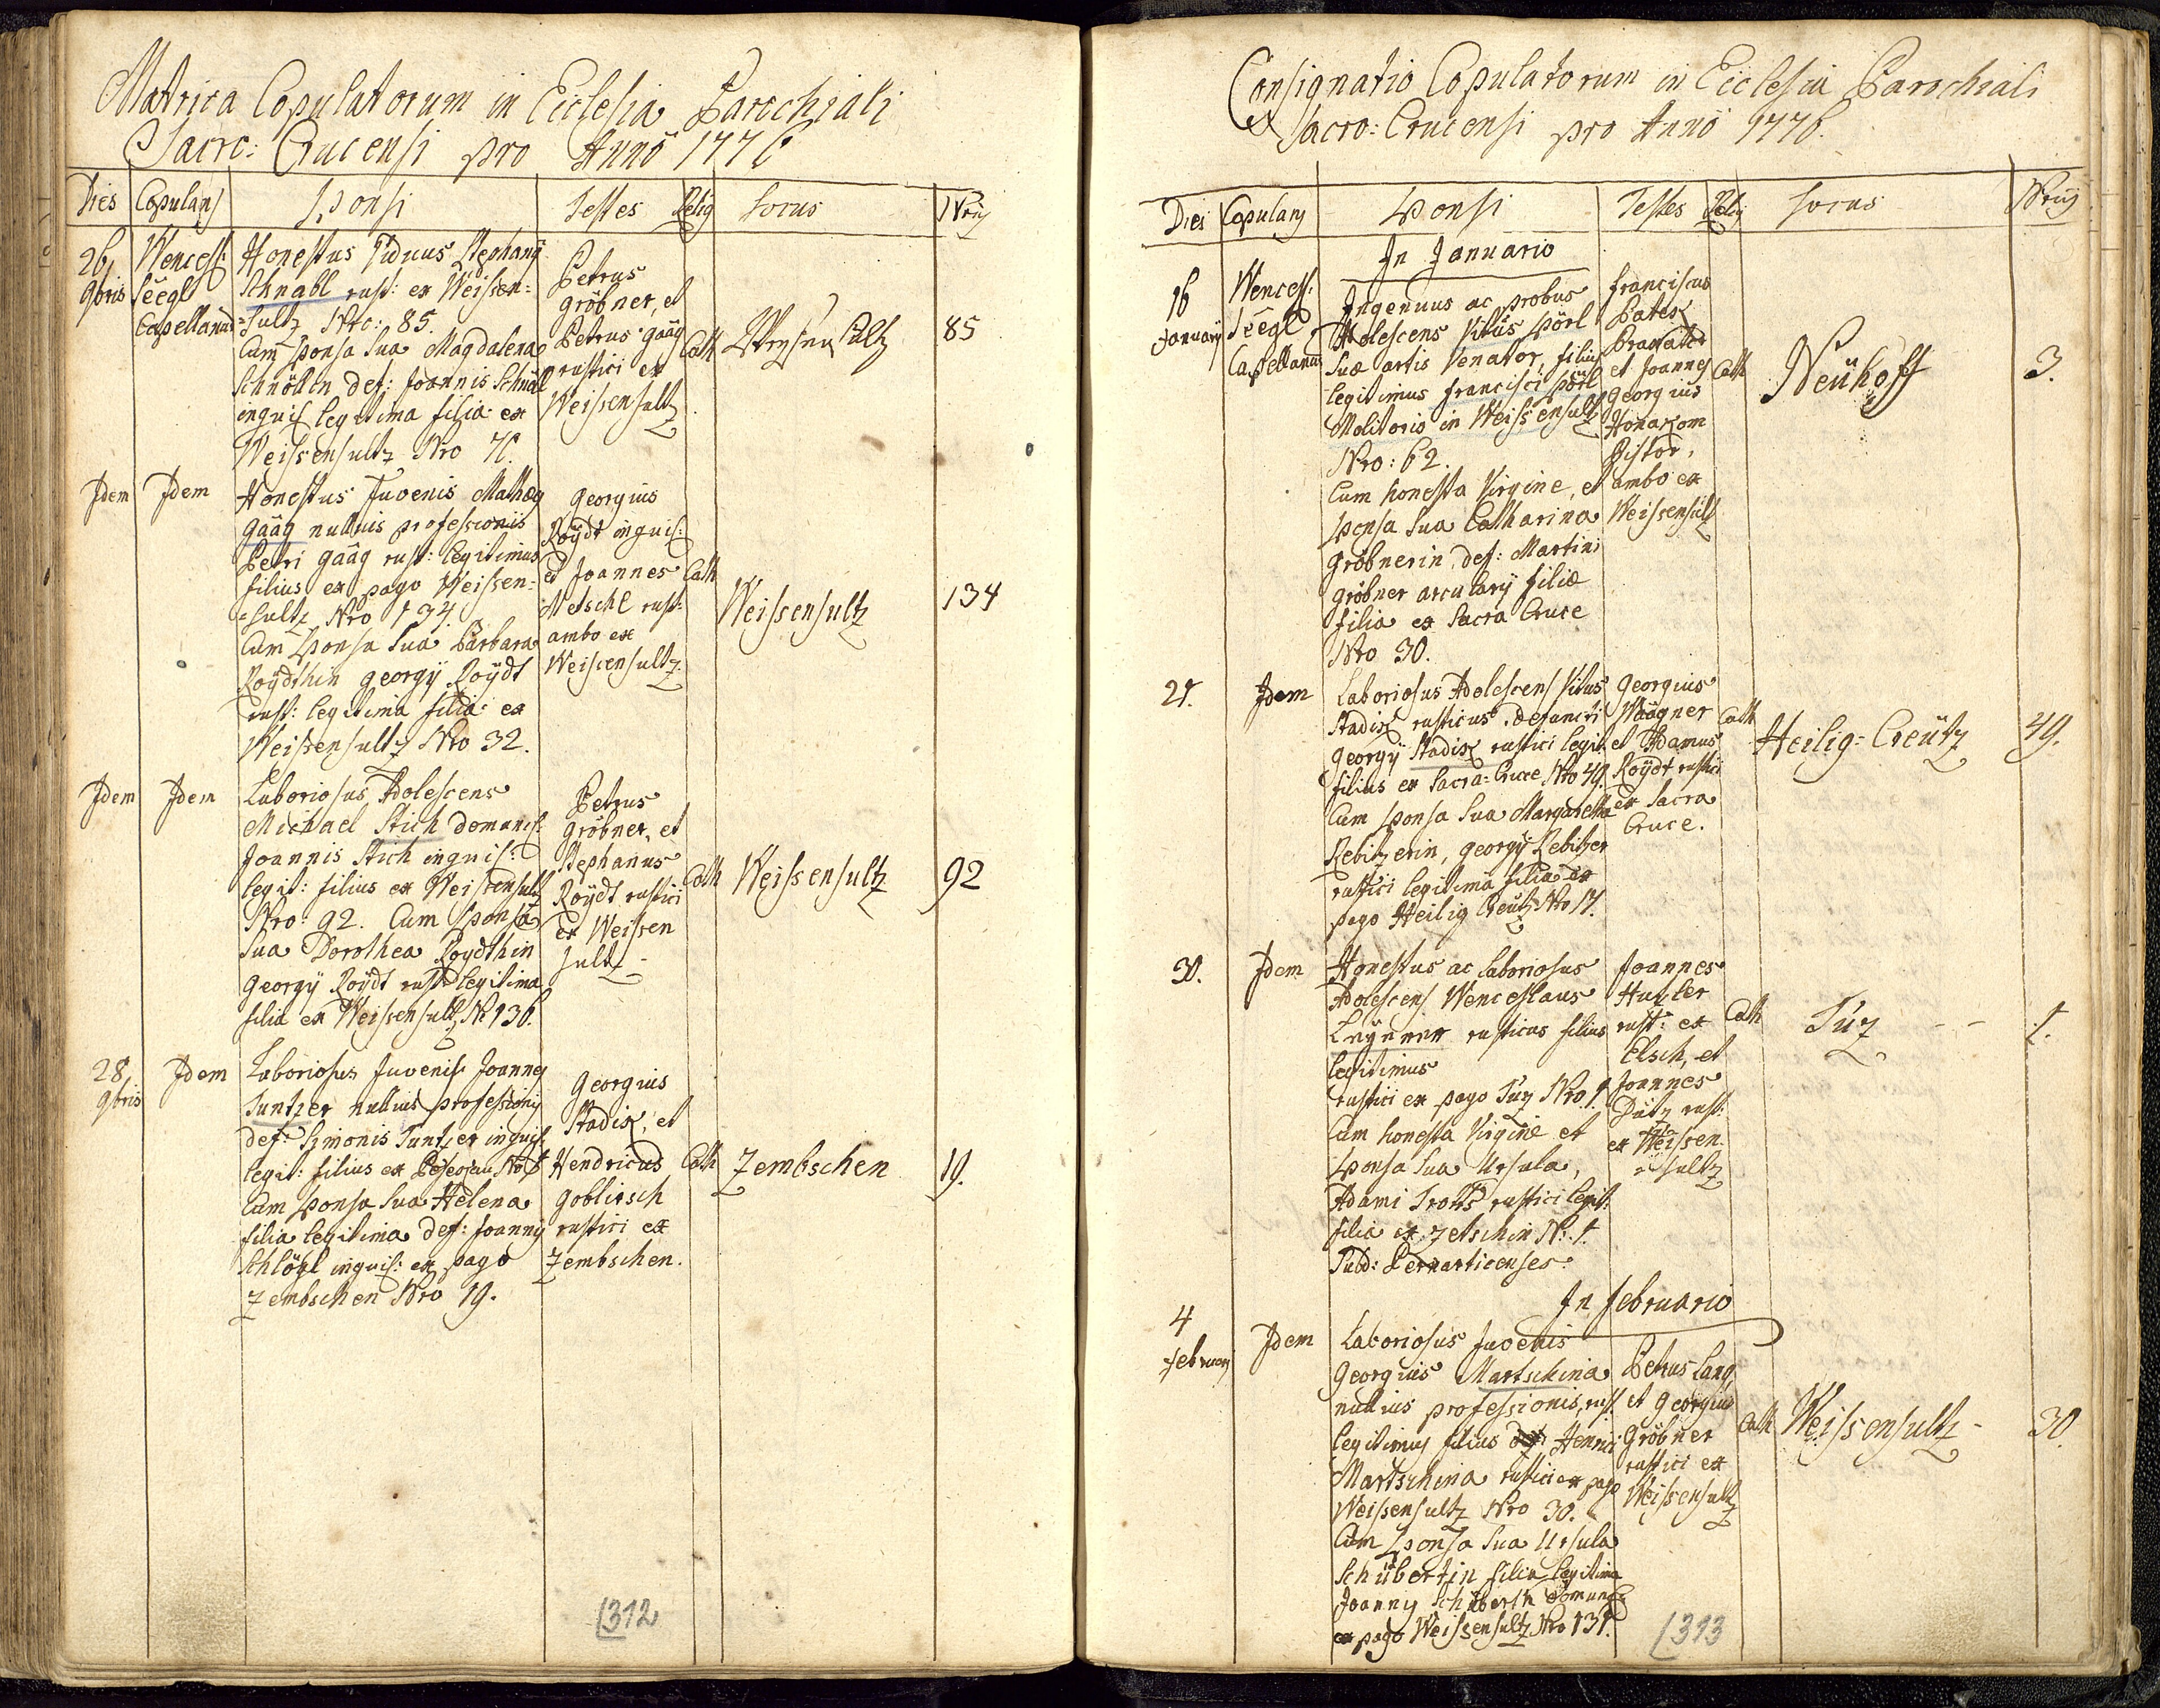 Matrica Copulatorum in Ecclesia Parochiali
Sacro: Crucensi pro Anno 1776
Dies Copulans Sponsi Testes Relig Locus Nrus
26
9bris
Wencesl:
Séegl
Capellanus
Honestus Viduus Stephany
Schnabl rust: ex Weissen=
=sultz Nro: 85.
Cum Sponsa Sua Magdalena
Schnöllin def: Joannis Schnöll
inquil legitima filia ex
Weissensultz Nro
Petrus
gröbner, et
Petrus gääg
rustici ex
Weissensultz
Cath
85
Idem Idem
Honestus Juvenis Mathæy
gääg nullius professionis
Petri gääg rust: legitimus
filius ex pago Weissen=
=sultz Nro 134.
Cum Sponsa Sua Barbara
Roÿdthin georgÿ Roÿdt
rust: legitima filia ex
Weissensultz Nro 32.
georgius
Roÿdt inquil:
et Joannes
Metschl rust:
ambo ex
Weissensultz
Cath
Weissensultz
134
Idem Idem
Laboriosus Adolescens
Michael Stich domanist:
Joannis Stich inquil:
legit: filius ex Weissensultz
Nro: 92. Cum Sponsa
Sua Dorothea Roydthin
georgÿ Roÿdt rust: legitima
filia ex Weissensultz N: 136.
Petrus
gröbner, et
Stephanus
Roÿdt rustici
ex Weissen
sultz
Cath
Weissensultz
92
28
9bris
Idem
Laboriosus Juvenis Joannes
Tuntzer nullius professionis
def: Simonis Tuntzer inquil:
legit: filius ex
Cum Sponsa Sua Helena
filia legitima def: Joannis
Schlögl inquil: ex pago
Zembschen Nro 19.
georgius
Stadix, et
Hendricus
goblirsch
rustici ex
Zembschen.
Cath
Zembschen
19.
312
Consignatio Copulatorum in Ecclesia Parochiali
Sacro: Crucensi pro Anno 1776.
Dies Copulans Sponsi Testes Relig Locus Nrus
In Januario
16
January
Wencesl:
Séegl
Capellanus
Ingenuus ac probus
Adolescens Vitus Pörl
Suæ artis Venator, filius
legitimus francisci Pörl
Molitoris in Weissensultz
Nro: 62.
Cum honesta Virgine, et
Sponsa Sua Catharina
gröbnerin, def: Martini
gröbner arcularÿ filiæ
filia ex Sacra Cruce
Nro 30.
franciscus
et Joannes
Georgius
Pistor,
ambo ex
Weissensultz
Cath
Neühoff
3.
21.
Idem
Laboriosus Adolescens Vitus
Stadix rusticus defuncti
georgÿ Stadix rustici legit:
filius ex Sacra: Cruce Nro 49.
Cum Sponsa Sua Margaretha
Rebitzerin, georgÿ Rebitzer
rustici legitima filia ex
pago Heilig Creutz Nro 17.
georgius
Wäägner
et Adamus
Roÿdt rustici
ex Sacra
Cruce.
Cath
Heilig=Creütz
49.
30.
Idem
Honestus ac laboriosus
Adolescens Wenceslaus
rusticus filius
legitimus
rustici ex pago Tüz Nro 1.
Cum honesta Virgine et
Sponsa Sua Ursula,
Adami rustici legit:
filia ex Zetschin N: 1.
Subd: Pernarticenses.
Joannes
rust: ex
Elsch, et
Joannes
rust:
ex Weissen
=sultz
Cath
Tüz
1.
In februario
4
february
Idem
Laboriosus Juvenis
Georgius Martschina
nullius professionis, rust.
legitimus filius Henrici
Martschina rustici ex pago
Weissensultz Nro 30.
Cum Sponsa Sua Ursula
Schübertin filia legitima
Joannis Schüberth domanist
ex pago Weissensultz Nro 131.
Petrus Lang,
et georgius
Gröbner
rustici ex
Weissensultz
Cath
Weissensultz
30.
313